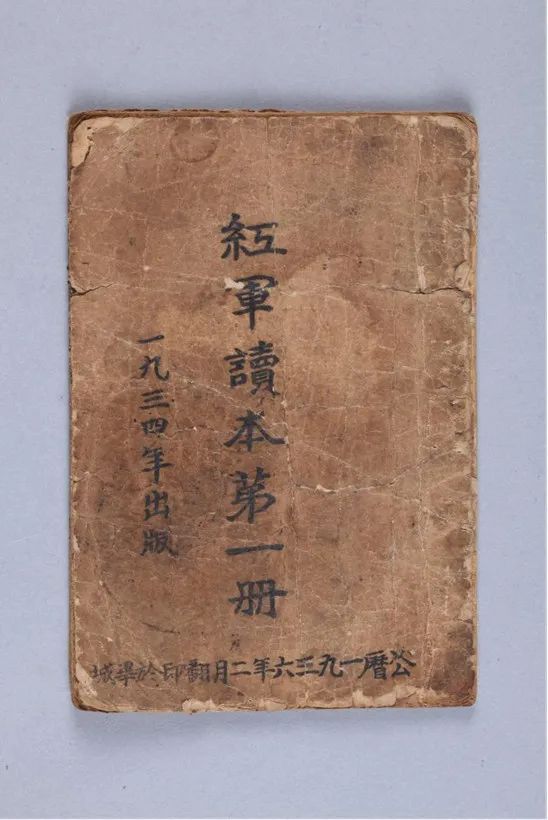 紅軍讀本第一册
一九三四年出版
公曆一九三六年二月翻印於畢城